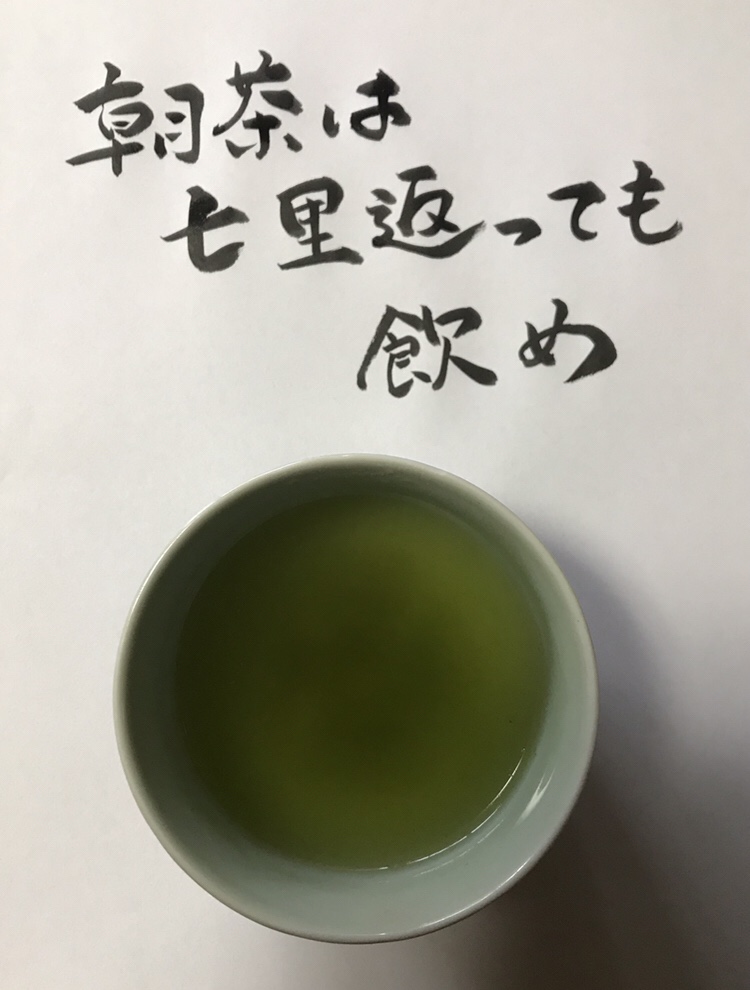 朝茶は
七里返っても
飲め